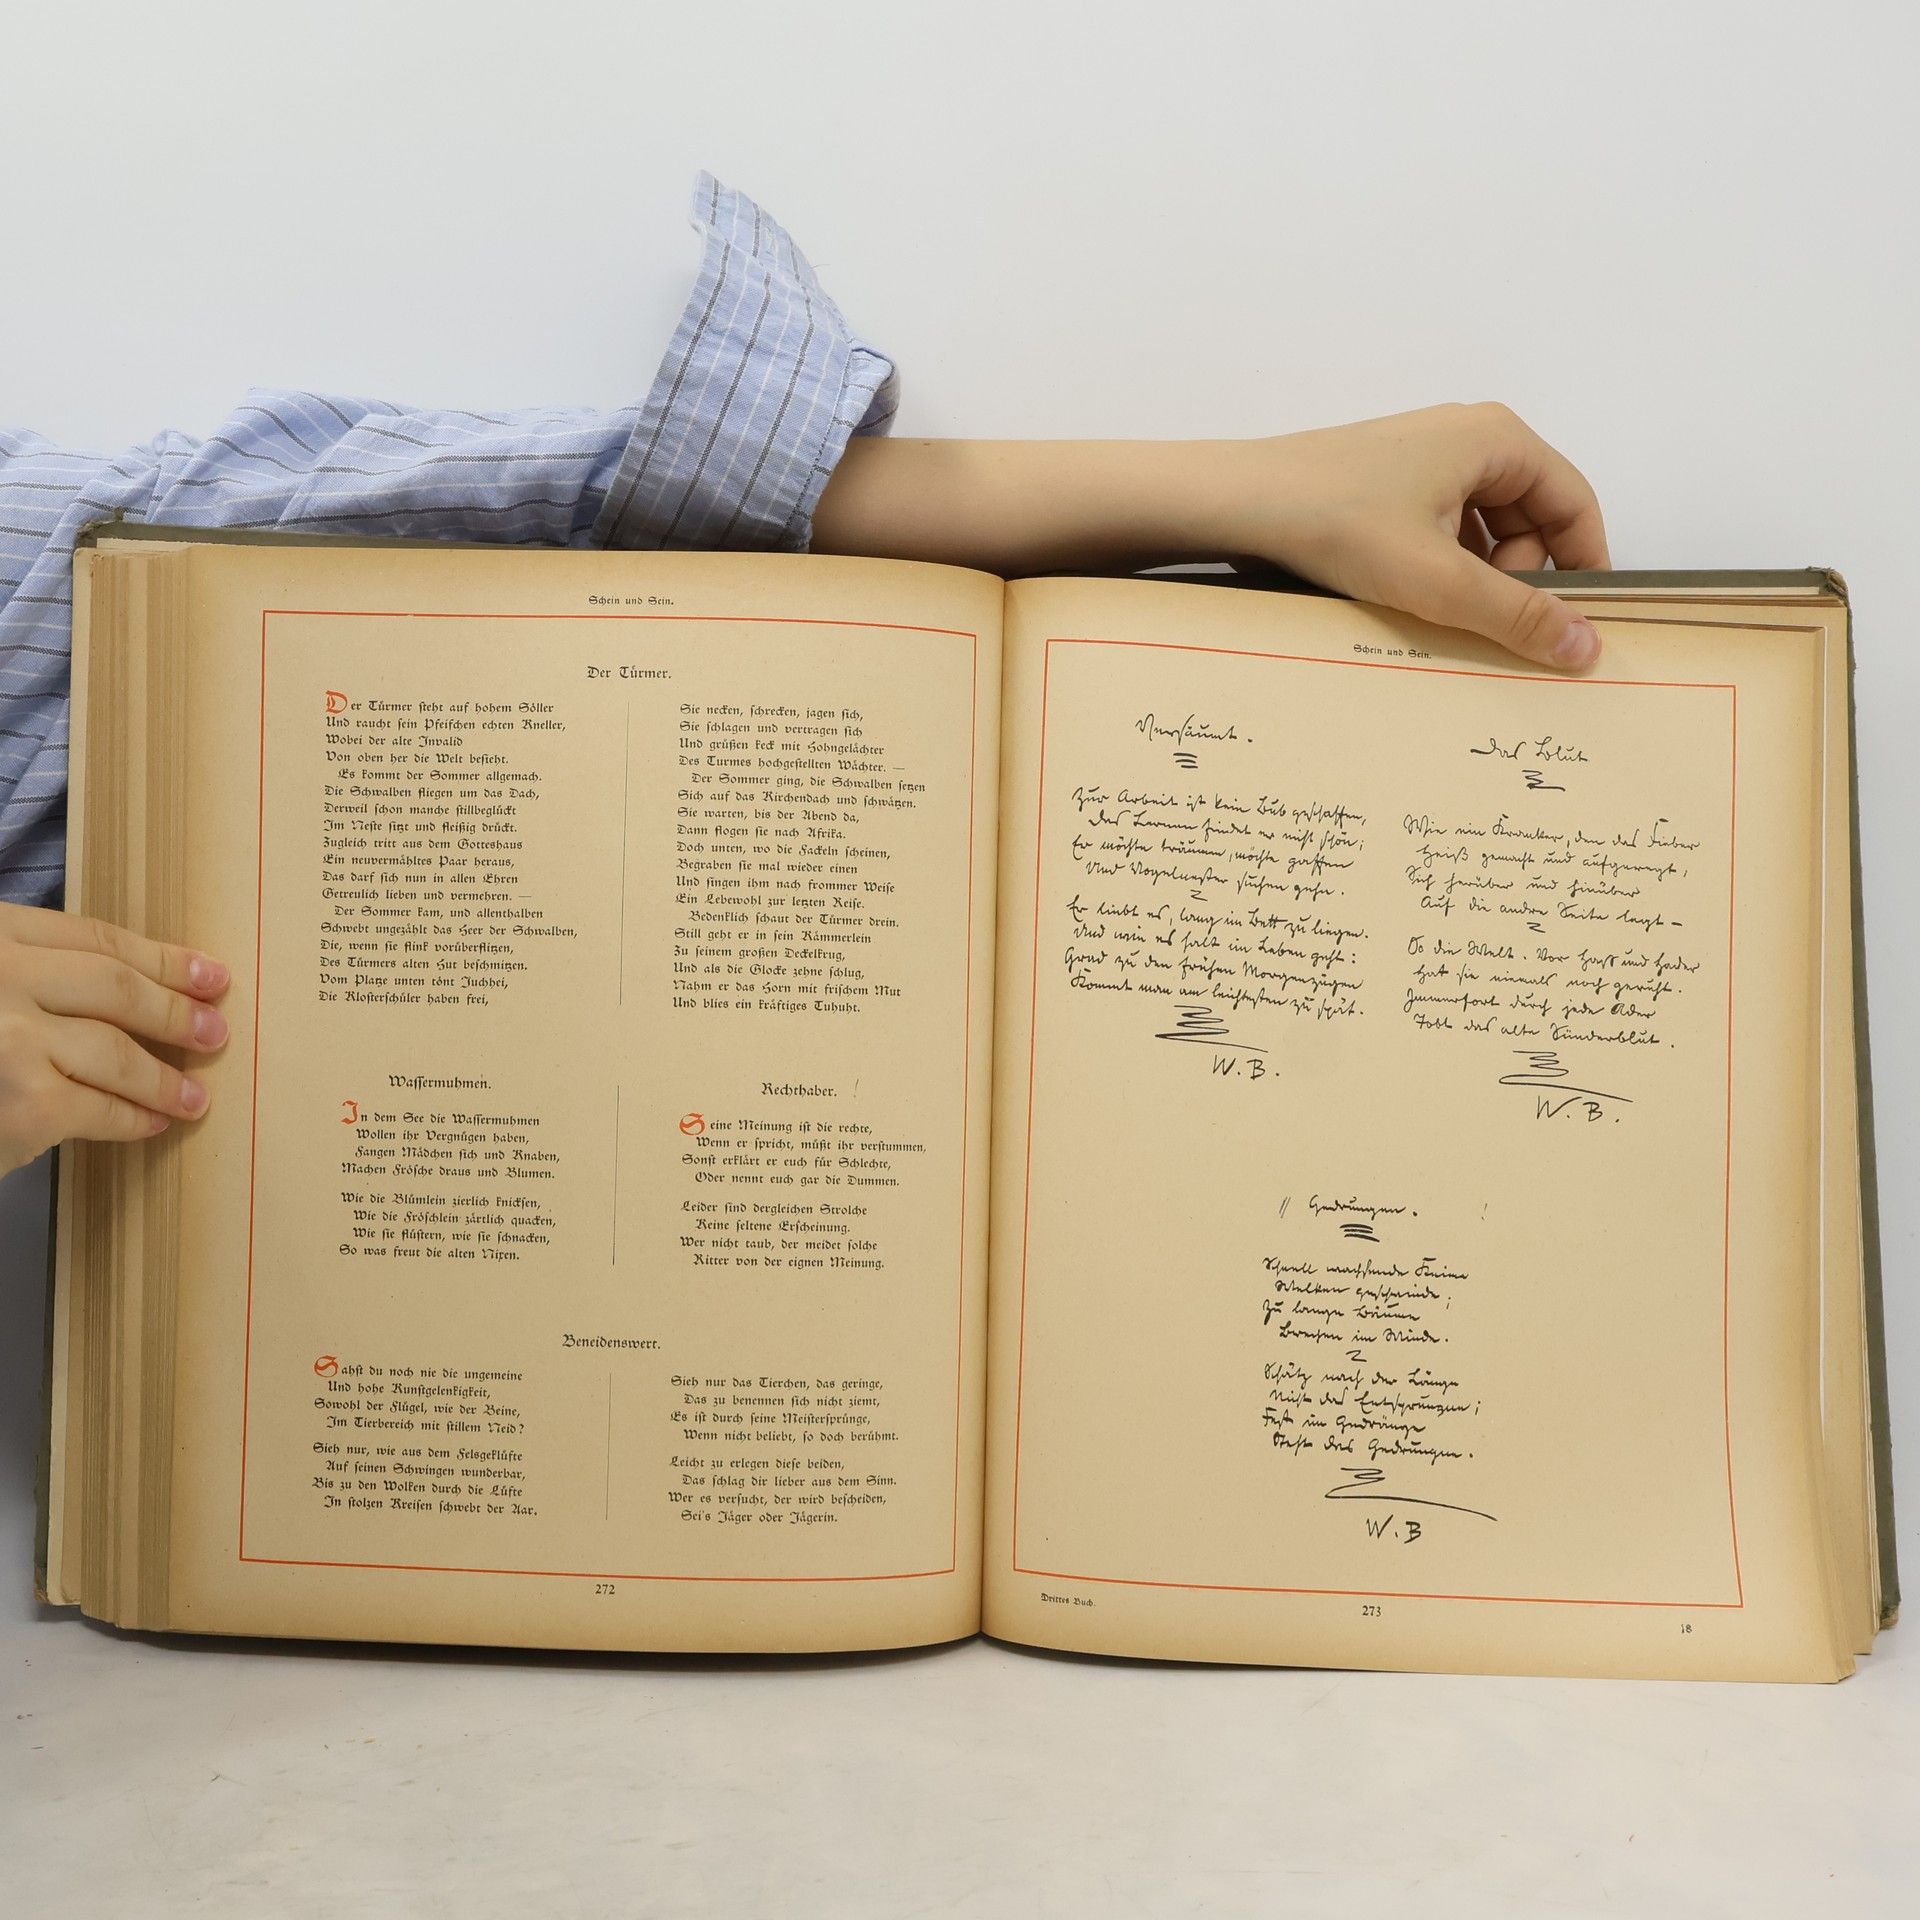 Schein und Sein.
Der Türmer.
Der Türmer steht auf hohem Söller
Und raucht sein Pfeifchen echten Kneller,
Wobei der alte Invalid
Von oben her die Welt besieht.
Es kommt der Sommer allgemach.
Die Schwalben fliegen um das Dach,
Derweil schon manche stillbeglückt
Im Neste sitzt und fleißig drückt.
Zugleich tritt aus dem Gotteshaus
Ein neuvermähltes Paar heraus,
Das darf sich nun in allen Ehren
Getreulich lieben und vermehren. —
Der Sommer kam, und allenthalben
Schwebt ungezählt das Heer der Schwalben,
Die, wenn sie flink vorüberflitzen,
Des Türmers alten Hut beschmitzen.
Vom Platze unten tönt Juchhei,
Die Klosterschüler haben frei,
Sie necken, schrecken, jagen sich,
Sie schlagen und vertragen sich
Und grüßen keck mit Hohngelächter
Des Turmes hochgestellten Wächter. —
Der Sommer ging, die Schwalben setzen
Sich auf das Kirchendach und schwätzen.
Sie warten, bis der Abend da,
Dann flogen sie nach Afrika.
Doch unten, wo die Fackeln scheinen,
Begraben sie mal wieder einen
Und singen ihm nach frommer Weise
Ein Lebewohl zur letzten Reise.
Bedenklich schaut der Türmer drein.
Still geht er in sein Kämmerlein
Zu seinem großen Deckelkrug,
Und als die Glocke zehne schlug,
Nahm er das Horn mit frischem Mut
Und blies ein kräftiges Tuhuht.
Wassermuhmen.
In dem See die Wassermuhmen
Wollen ihr Vergnügen haben,
Fangen Mädchen sich und Knaben,
Machen Frösche draus und Blumen.
Wie die Blümlein zierlich knicksen,
Wie die Fröschlein zärtlich quacken,
Wie sie flüstern, wie sie schnacken,
So was freut die alten Nixen.
Rechthaber. !
Seine Meinung ist die rechte,
Wenn er spricht, müßt ihr verstummen,
Sonst erklärt er euch für Schlechte,
Oder nennt euch gar die Dummen.
Leider sind dergleichen Strolche
Keine seltene Erscheinung.
Wer nicht taub, der meidet solche
Ritter von der eignen Meinung.
Beneidenswert.
Sahst du noch nie die ungemeine
Und hohe Kunstgelenkigkeit,
Sowohl der Flügel, wie der Beine,
Im Tierbereich mit stillem Neid?
Sieh nur, wie aus dem Felsgeklüfte
Auf seinen Schwingen wunderbar,
Bis zu den Wolken durch die Lüfte
In stolzen Kreisen schwebt der Aar.
Sieh nur das Tierchen, das geringe,
Das zu benennen sich nicht ziemt,
Es ist durch seine Meistersprünge,
Wenn nicht beliebt, so doch berühmt.
Leicht zu erlegen diese beiden,
Das schlag dir lieber aus dem Sinn.
Wer es versucht, der wird bescheiden,
Sei's Jäger oder Jägerin.
272
Schein und Sein.
Versäumt.
Zur Arbeit ist kein Bub geschaffen,
Das Lernen findet er nicht schön;
Er möchte träumen, möchte gaffen
Und Vogelnester suchen gehn.
Er liebt es, lang im Bett zu liegen.
Und wie es halt im Leben geht:
Grad zu den frühen Morgenzügen
Kommt man am leichtesten zu spät.
W. B.
Das Blut
Wie ein Kranker, den das Fieber
Heiß gemacht und aufgeregt,
Sich herüber und hinüber
Auf die andre Seite legt –
So die Welt. Vor Haß und Hader
Hat sie niemals noch geruht.
Immerfort durch jede Ader
Tobt das alte Sünderblut.
W. B.
// Gedrungen. !
Schnell wachsende Keime
Welken geschwinde;
Zu lange Bäume
Brechen im Winde.
Schätz nach der Länge
Nicht das Entsprungne;
Fest im Gedränge
Steht das Gedrungne.
W. B
Drittes Buch.
273
18